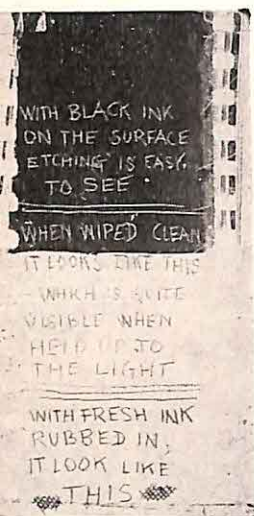 WITH BLACK INK
ON THE SURFACE
ETCHING IS EASY
TO SEE
WHEN WIPED CLEAN
IT LOOKS LIKE THIS
- WHICH IS QUITE
VISIBLE WHEN
HELD UP TO
THE LIGHT
WITH FRESH INK
RUBBED IN,
IT LOOK LIKE
THIS